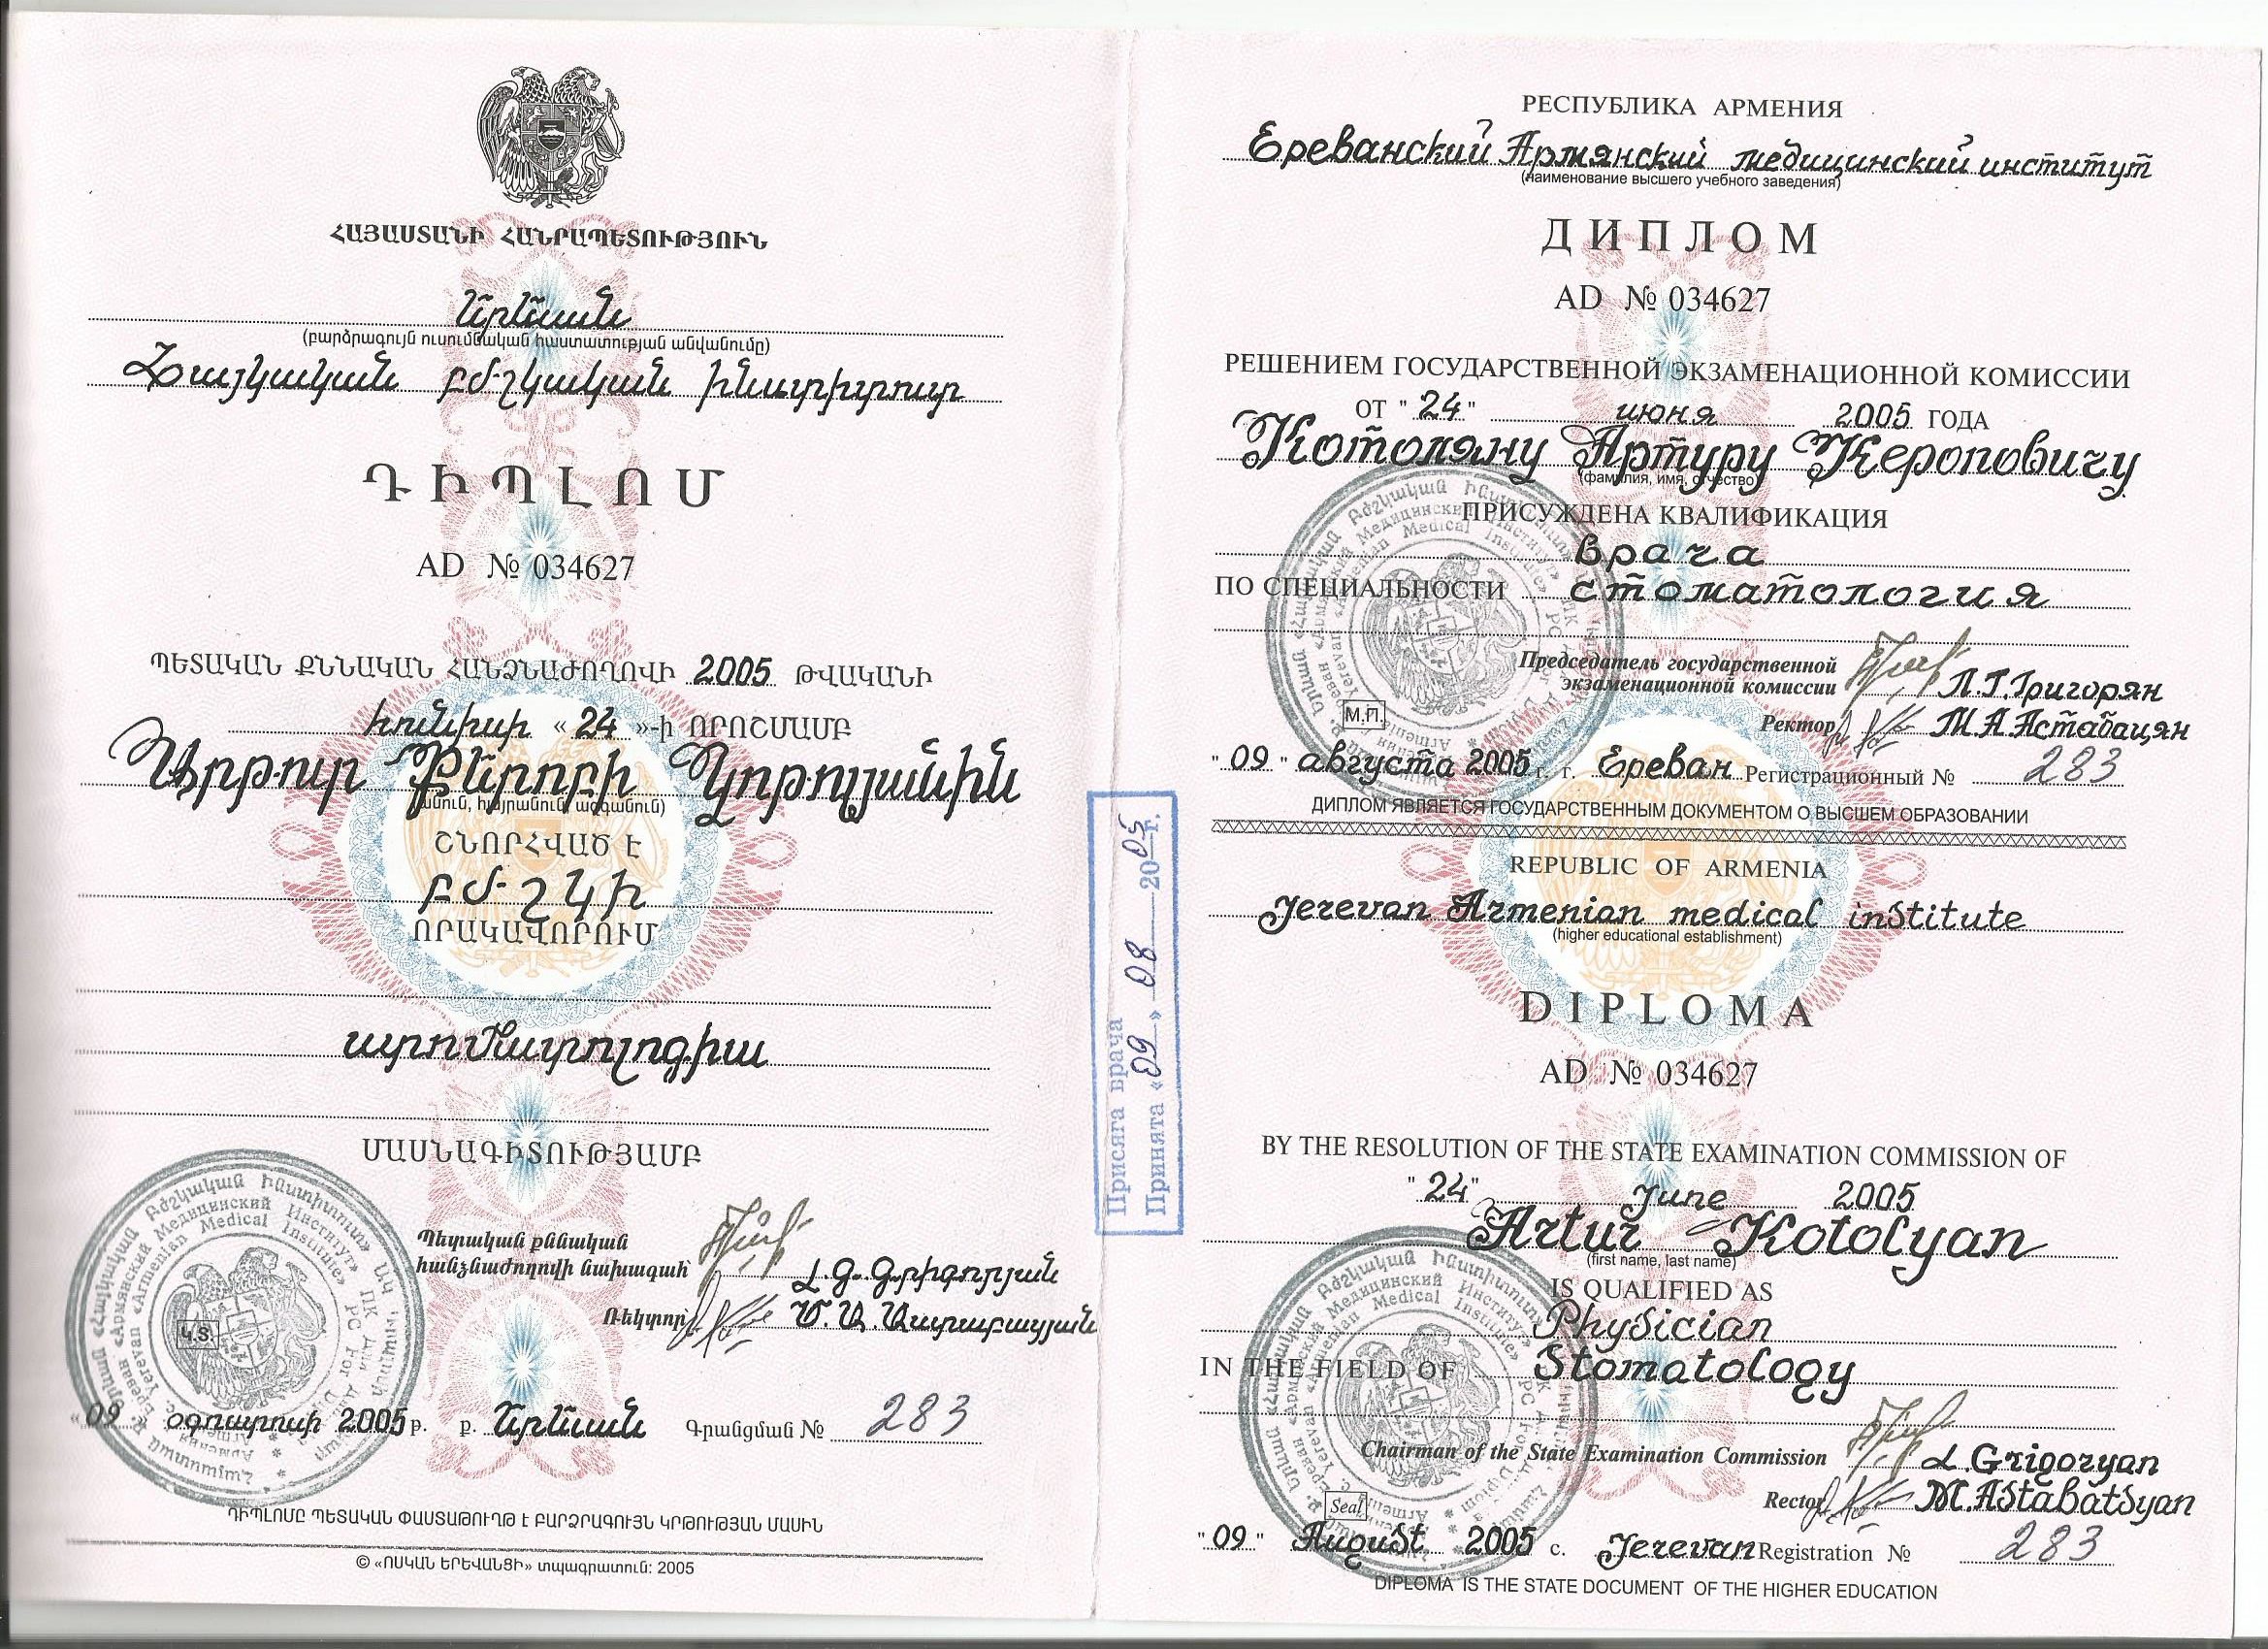 ՀԱՅԱՍՏԱՆԻ ՀԱՆՐԱՊԵՏՈՒԹՅՈՒՆ
Երևան
(բարձրագույն ուսումնական հաստատության անվանումը)
Հայկական բժշկական ինստիտուտ
ԴԻՊԼՈՄ
AD № 034627
ՊԵՏԱԿԱՆ ՔՆՆԱԿԱՆ ՀԱՆՁՆԱԺՈՂՈՎԻ 2005 ԹՎԱԿԱՆԻ
հունիսի « 24 »-ի ՈՐՈՇՄԱՄԲ
Արթուր Քերոբի Կոթոլյանին
(անուն, հայրանուն, ազգանուն)
ՇՆՈՐՀՎԱԾ Է
բժշկի
ՈՐԱԿԱՎՈՐՈՒՄ
ստոմատոլոգիա
ՄԱՍՆԱԳԻՏՈՒԹՅԱՄԲ
Պետական քննական
հանձնաժողովի նախագահ Լ.Գ.Գրիգորյան
Ռեկտոր Մ.Ա.Աստաբացյան
Կ.Տ.
«09 օգոստոսի 2005 թ. ք. Երևան Գրանցման № 283
ԴԻՊԼՈՄԸ ՊԵՏԱԿԱՆ ՓԱՍՏԱԹՈՒՂԹ Է ԲԱՐՁՐԱԳՈՒՅՆ ԿՐԹՈՒԹՅԱՆ ՄԱՍԻՆ
© «ՈՍԿԱՆ ԵՐԵՎԱՆՑԻ» տպագրատուն: 2005
Присяга врача
Принята «09» 08 2005 г.
РЕСПУБЛИКА АРМЕНИЯ
Ереванский Армянский медицинский институт
(наименование высшего учебного заведения)
ДИПЛОМ
AD № 034627
РЕШЕНИЕМ ГОСУДАРСТВЕННОЙ ЭКЗАМЕНАЦИОННОЙ КОМИССИИ
ОТ "24" июня 2005 ГОДА
Котоляну Артуру Кероповичу
(фамилия, имя, отчество)
ПРИСУЖДЕНА КВАЛИФИКАЦИЯ
врача
ПО СПЕЦИАЛЬНОСТИ стоматология
Председатель государственной
экзаменационной комиссии Л.Г.Григорян
Ректор М.А.Астабацян
М.П.
"09" августа 2005 г. г. Ереван Регистрационный № 283
ДИПЛОМ ЯВЛЯЕТСЯ ГОСУДАРСТВЕННЫМ ДОКУМЕНТОМ О ВЫСШЕМ ОБРАЗОВАНИИ
REPUBLIC OF ARMENIA
Jerevan Armenian medical institute
(higher educational establishment)
DIPLOMA
AD № 034627
BY THE RESOLUTION OF THE STATE EXAMINATION COMMISSION OF
"24" June 2005
Artur Kotolyan
(first name, last name)
IS QUALIFIED AS
Physician
IN THE FIELD OF Stomatology
Chairman of the State Examination Commission L.Grigoryan
Rector M.Astabatsyan
Seal
"09" August 2005 c. Jerevan Registration № 283
DIPLOMA IS THE STATE DOCUMENT OF THE HIGHER EDUCATION